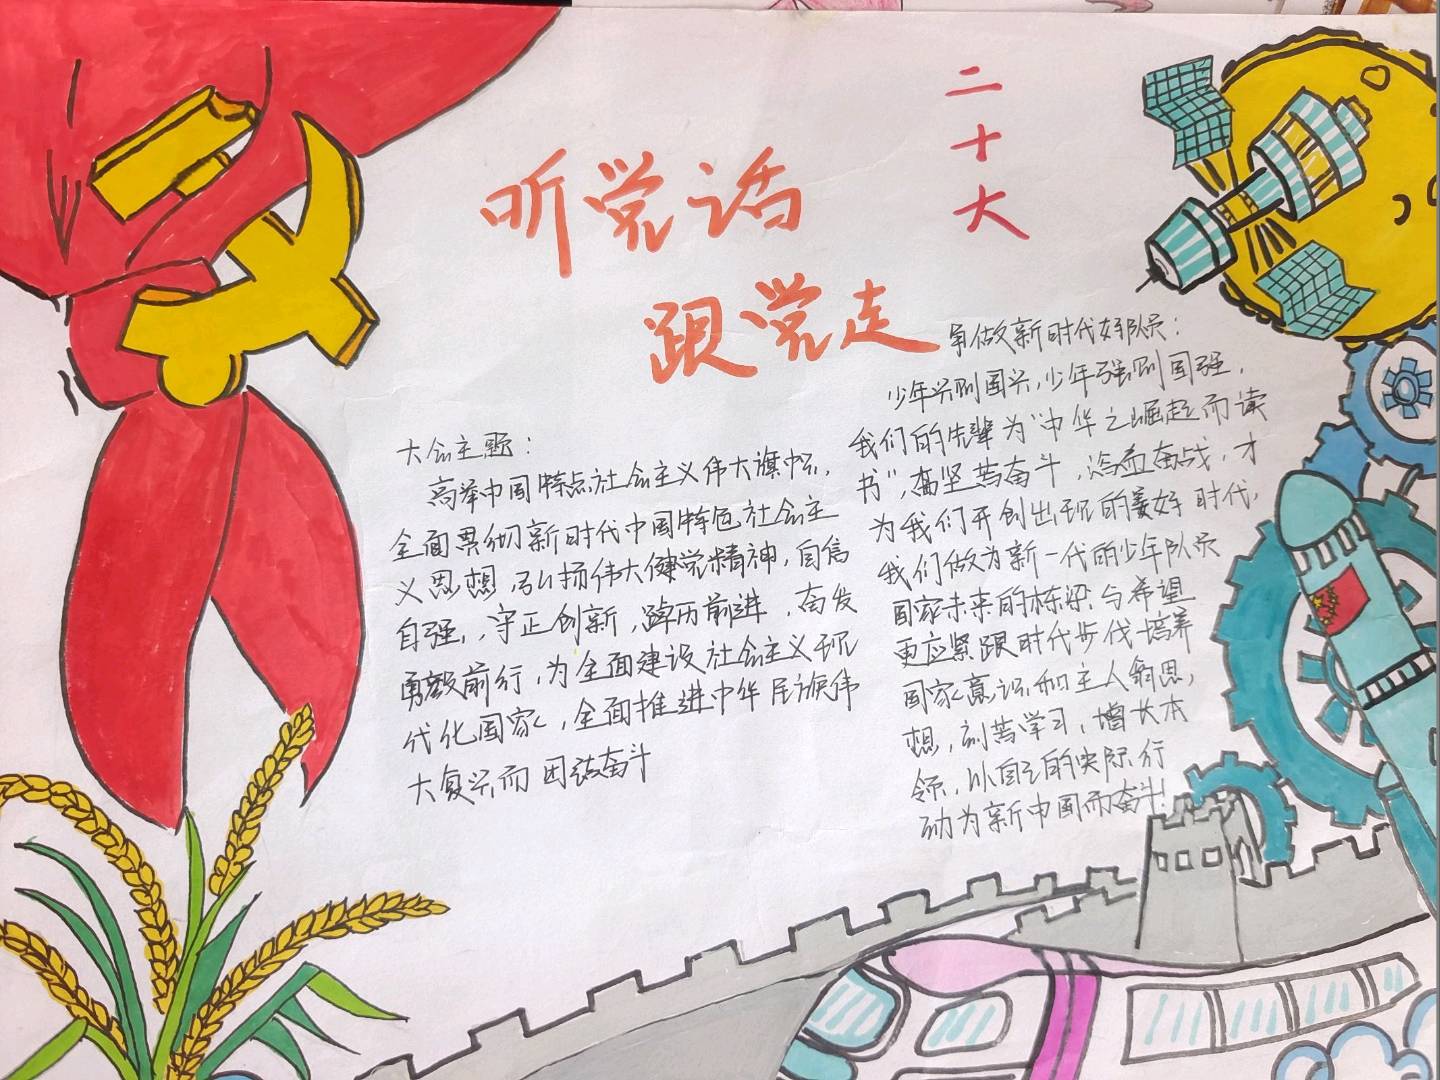 二十大
听党话
跟党走
大会主题：
高举中国特色社会主义伟大旗帜，
全面贯彻新时代中国特色社会主
义思想，弘扬伟大健党精神，自信
自强，守正创新，踔历前进，奋发
勇毅前行，为全面建设社会主义现
代化国家，全面推进中华民族伟
大复兴而团结奋斗
争做新时代好队员：
少年兴则国兴，少年强则国强，
我们的先辈为“中华之崛起而读
书”，坚苦奋斗，浴血奋战，才
为我们开创出现的美好时代，
我们做为新一代的少年队员
国家未来的栋梁与希望
更应紧跟时代步伐培养
国家意识和主人翁思，
想，刻苦学习，增长本
领，以自己的实际行
动为新中国而奋斗！